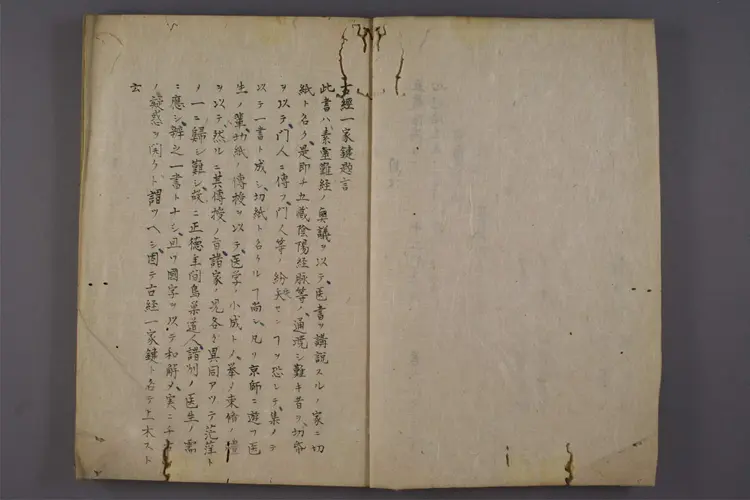 古經一家鍵題言
此書ハ素靈難経ノ奥議ヲ以テ医書ヲ講説スルノ家ニ切
紙ト名ク是即チ五藏陰陽経脉等ノ通説シ難キ者ヲ切紙
ヲ以テ門人ニ傳フ門人等ノ紛失センヿヲ恐レテ集メテ
以テ一書ト成シ切紙ト名クルヿ尚シ凡ソ京師ニ遊フ医
生ノ輩切紙ノ傳授ヲ以テ医学ノ小成トノ挙メ束脩ノ禮
ヲ以テ然ルニ其傳授ノ旨諸家ノ見各〻異同アツテ茫茫ト
メ一ニ歸シ難シ故ニ正德年間烏巣道人諸州ノ医生ノ需
ニ應シ辨之一書トナシ且ツ國字ヲ以テ和解メ実ニ千古
ノ疑惑ヲ開クト謂フヘシ因テ古経一家鍵ト名テ上木スト
云